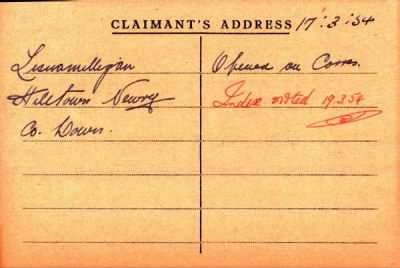 CLAIMANT'S ADDRESS 17.3.54
Lisnamulligan
Hilltown Newry
Co. Down.
Opened on Corres.
Index noted 19.3.54